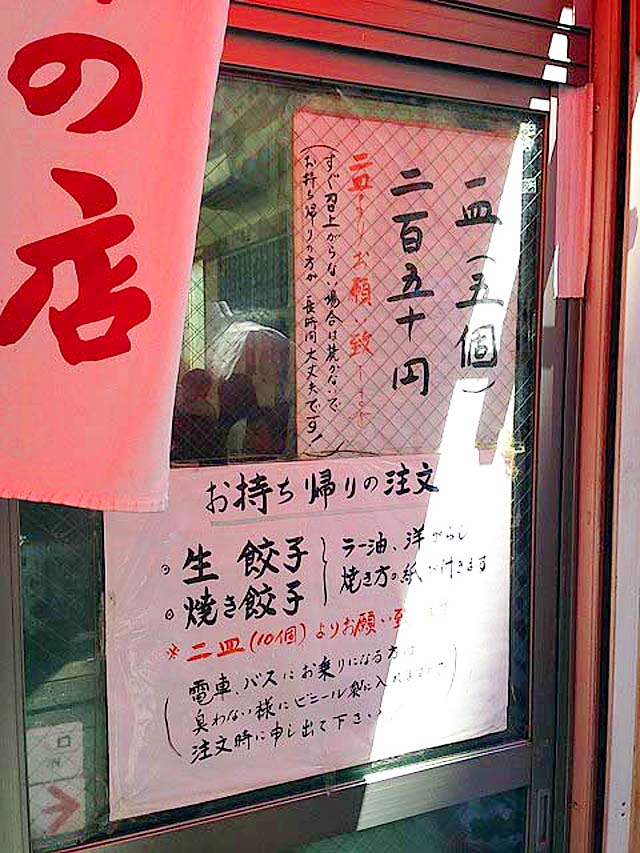 の店
一皿(五個)
二百五十円
二皿よりお願い致します
(すぐ召上がらない場合は焼かないで
お持ち帰りの方が長時間大丈夫です!)
お持ち帰りの注文
生餃子
焼き餃子
ラー油、洋がらし
焼き方の紙が付きます
※二皿(10個)よりお願い致します
(電車、バスにお乗りになる方は
臭わない様にビニール袋に入れますので
注文時に申し出て下さい)